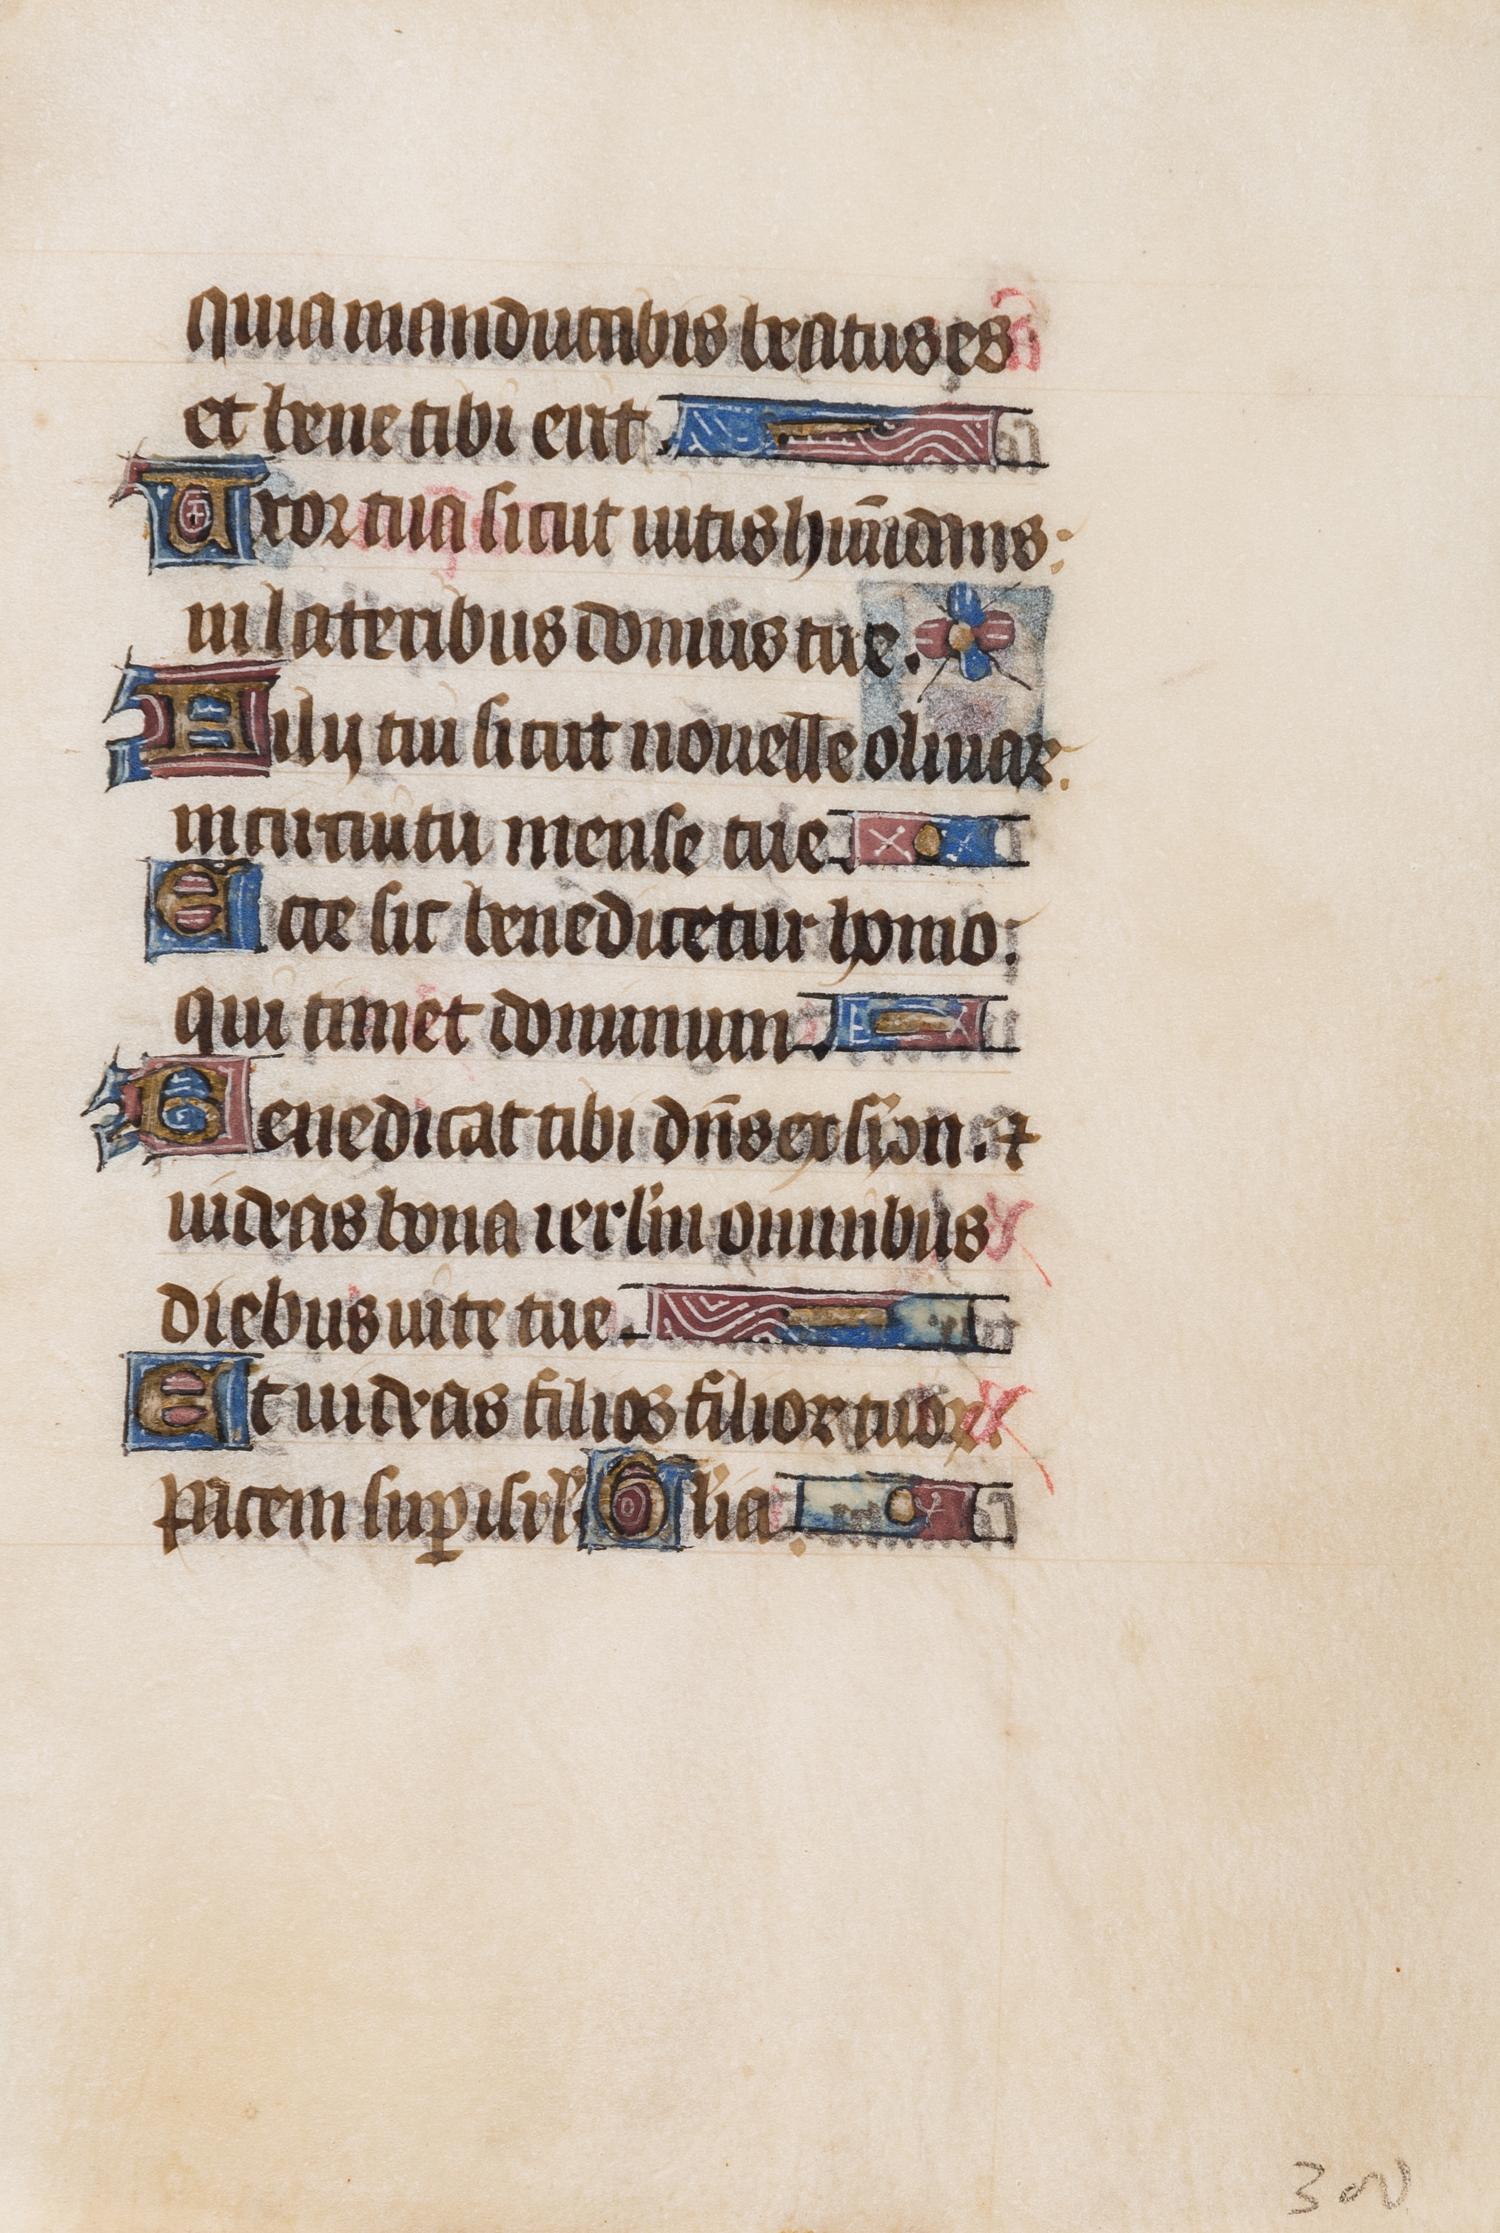 quia manducabis beatus es
et bene tibi erit.
Uxor tua sicut uitis hūūdans:
in lateribus domus tue.
Filij tui sicut nouelle oliuar:
in circuitu mense tue.
Ecce sic benedicetur homo:
qui timet dominum.
Benedicat tibi dn̄s ex syon. ⁊
uideas bona ierl̄m omnibus
diebus uite tue.
Et uideas filios filioꝝ tuoꝝ.
pacem suꝑ isrl̄. Gl̄ia